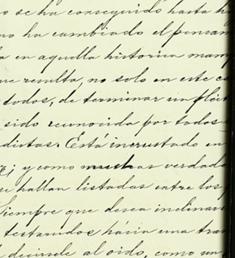 no se ha conseguido hasta h
no ha cambiado el pensam
en aquella historica mam
que resulta, no solo en este c
todos, de terminar un
sido reconocida por todos
distas. Está incrustado en
y como muchas verdade
se hallan listados entre los
Siempre que desea inclinar
testarudos hácia una tra
decirsele al oido, como un